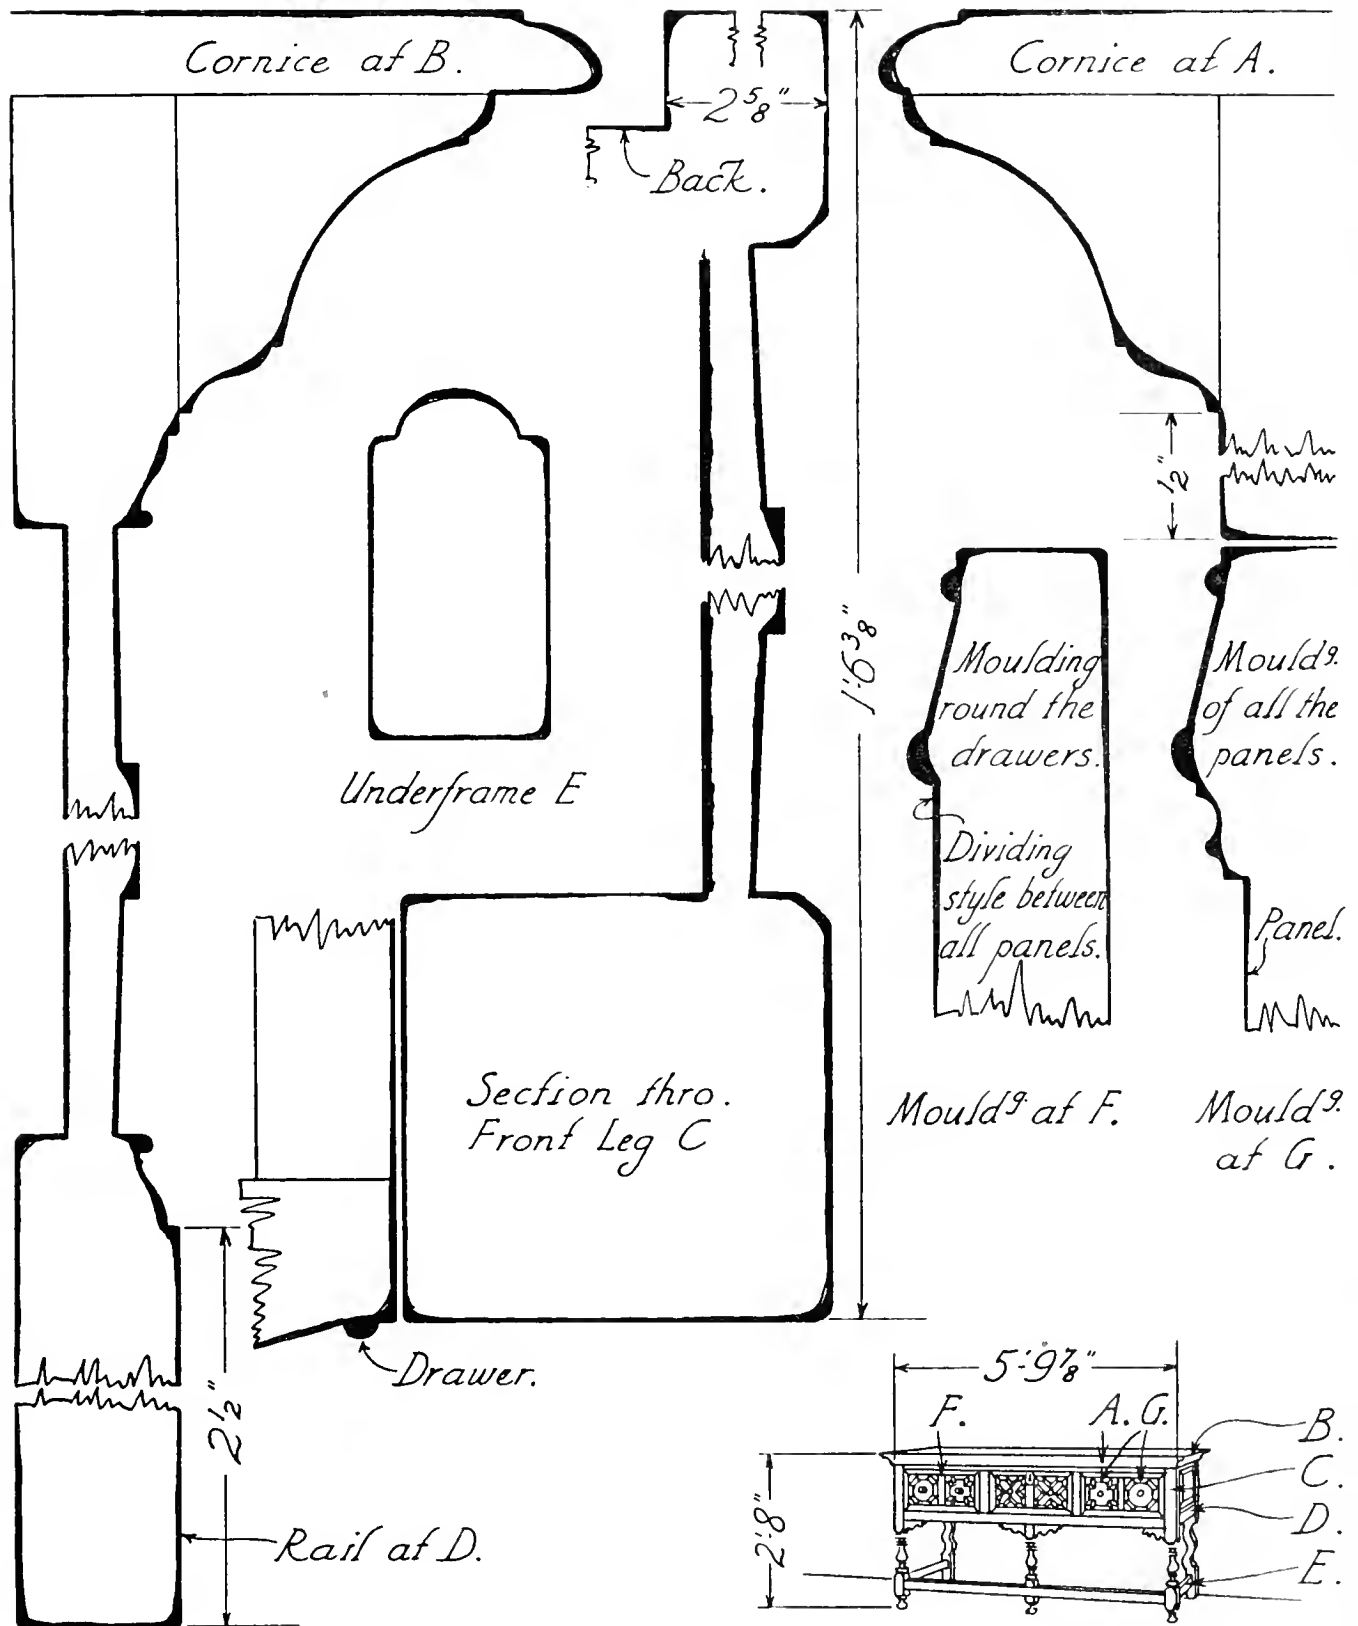 Cornice at B.
2 5/8"
Back.
Cornice at A.
1/2"
1'.6 3/8"
Underframe E
Moulding
round the
drawers.
Dividing
style between
all panels.
Mouldg.
of all the
panels.
Panel.
Section thro.
Front Leg C
Mouldg. at F.
Mouldg.
at G.
Drawer.
2 1/2"
Rail at D.
5'-9 7/8"
F.
A. G.
B.
C.
D.
E.
2'-8"